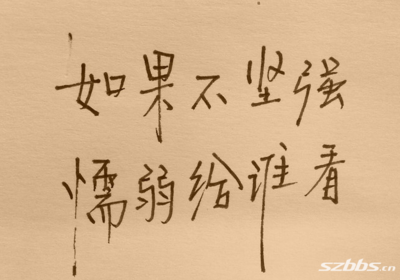 如果不坚强
懦弱给谁看
szbbs.cn